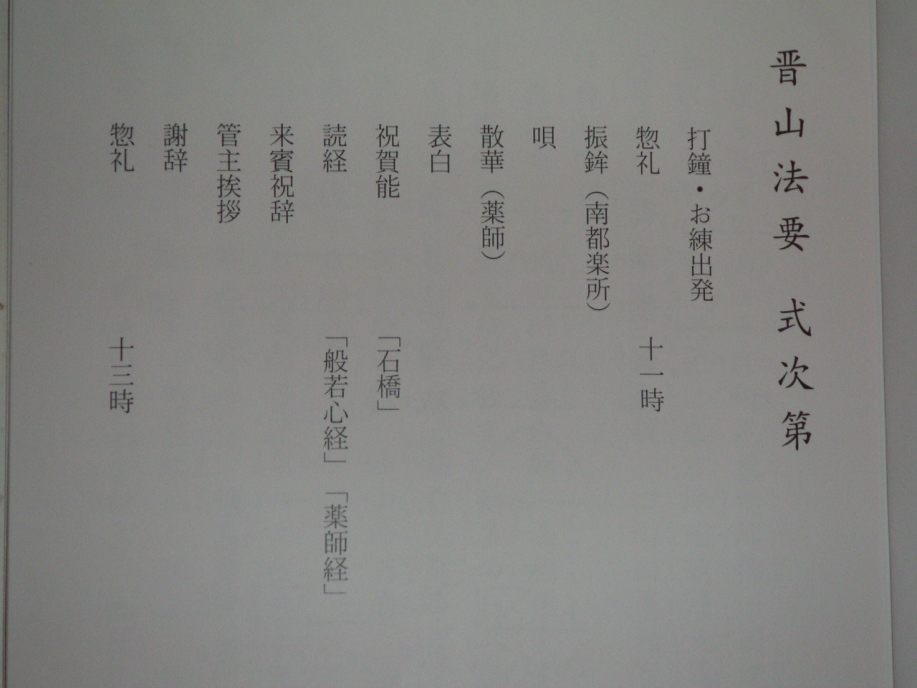 晋山法要 式次第
打鐘・お練出発
惣礼 十一時
振鉾（南都楽所）
唄
散華（薬師）
表白
祝賀能 「石橋」
読経 「般若心経」「薬師経」
来賓祝辞
管主挨拶
謝辞
惣礼 十三時